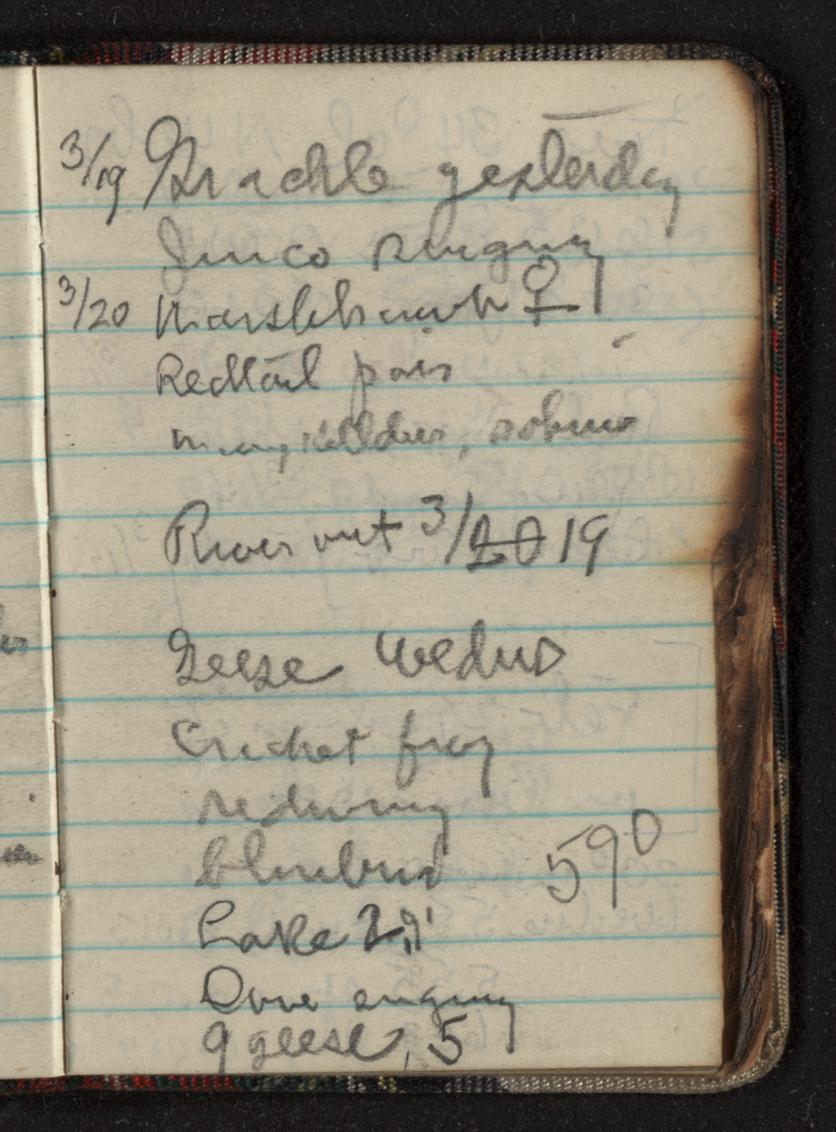 3/19 Grackle yesterday
Junco singing
3/20 Marshhawk ♀
Redtail pair
many killdeer, robins
River out 3/20 19
Geese Wedus
Cricket frog
redwing
bluebird 59°
Lake 29'
Dove singing
9 geese, 5